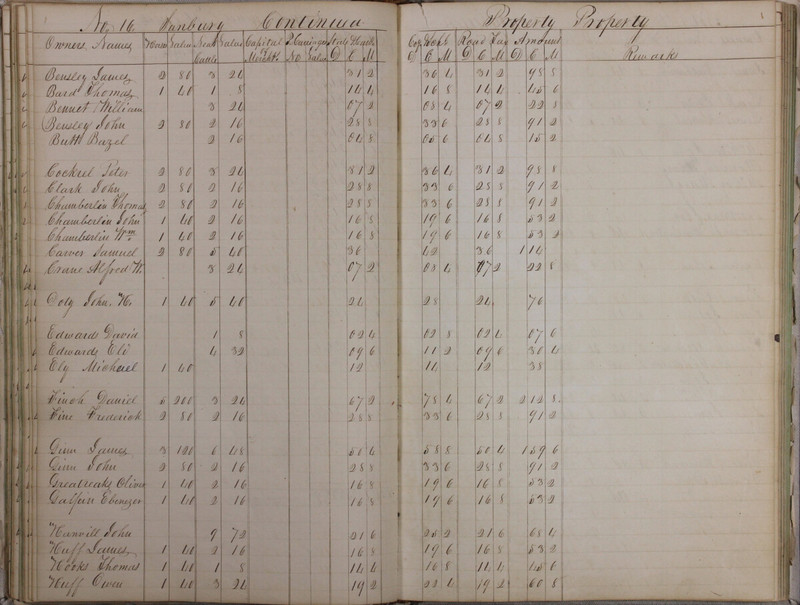 No. 16 Continued Property Property
Owners Names Horses Value Neat Cattle Value Capital Merch't P. Carriages No Value State D C M Co. & School D C M Road Tax D C M Amount D C M Remarks
Bensley James 2 80 3 24 31 2 36 4 31 2 98 8
Bard Thomas 1 40 1 8 14 4 16 8 14 4 45 6
Bennet William 3 24 07 2 08 4 07 2 22 8
Bensley John 2 80 2 16 28 8 33 6 28 8 91 2
Butt Bazel 2 16 04 8 05 6 04 8 15 2
Cockrel Peter 2 80 3 24 31 2 36 4 31 2 98 8
Clark John 2 80 2 16 28 8 33 6 28 8 91 2
Chamberlin Thomas 2 80 2 16 28 8 33 6 28 8 91 2
Chamberlin John 1 40 2 16 16 8 19 6 16 8 53 2
Chamberlin Wm 1 40 2 16 16 8 19 6 16 8 53 2
Carver Samuel 2 80 5 40 36 42 36 1 14
Crane Alfred H. 3 24 07 2 08 4 07 2 22 8
Doty John H. 1 40 5 40 24 28 24 76
Edwards David 1 8 02 4 02 8 02 4 07 6
Edwards Eli 4 32 09 6 11 2 09 6 30 4
Ely Michael 1 40 12 14 12 38
Finch Daniel 5 200 3 24 67 2 78 4 67 2 2 12 8
Fine Frederick 2 80 2 16 28 8 33 6 28 8 91 2
Ginn James 3 120 6 48 50 4 58 8 50 4 1 59 6
Ginn John 2 80 2 16 28 8 33 6 28 8 91 2
Greatreaks Oliver 1 40 2 16 16 8 19 6 16 8 53 2
Galpin Ebenezer 1 40 2 16 16 8 19 6 16 8 53 2
Hanvill John 9 72 21 6 25 2 21 6 68 4
Huff James 1 40 2 16 16 8 19 6 16 8 53 2
Hooks Thomas 1 40 1 8 14 4 16 8 14 4 45 6
Huff Owen 1 40 3 24 19 2 22 4 19 2 60 8